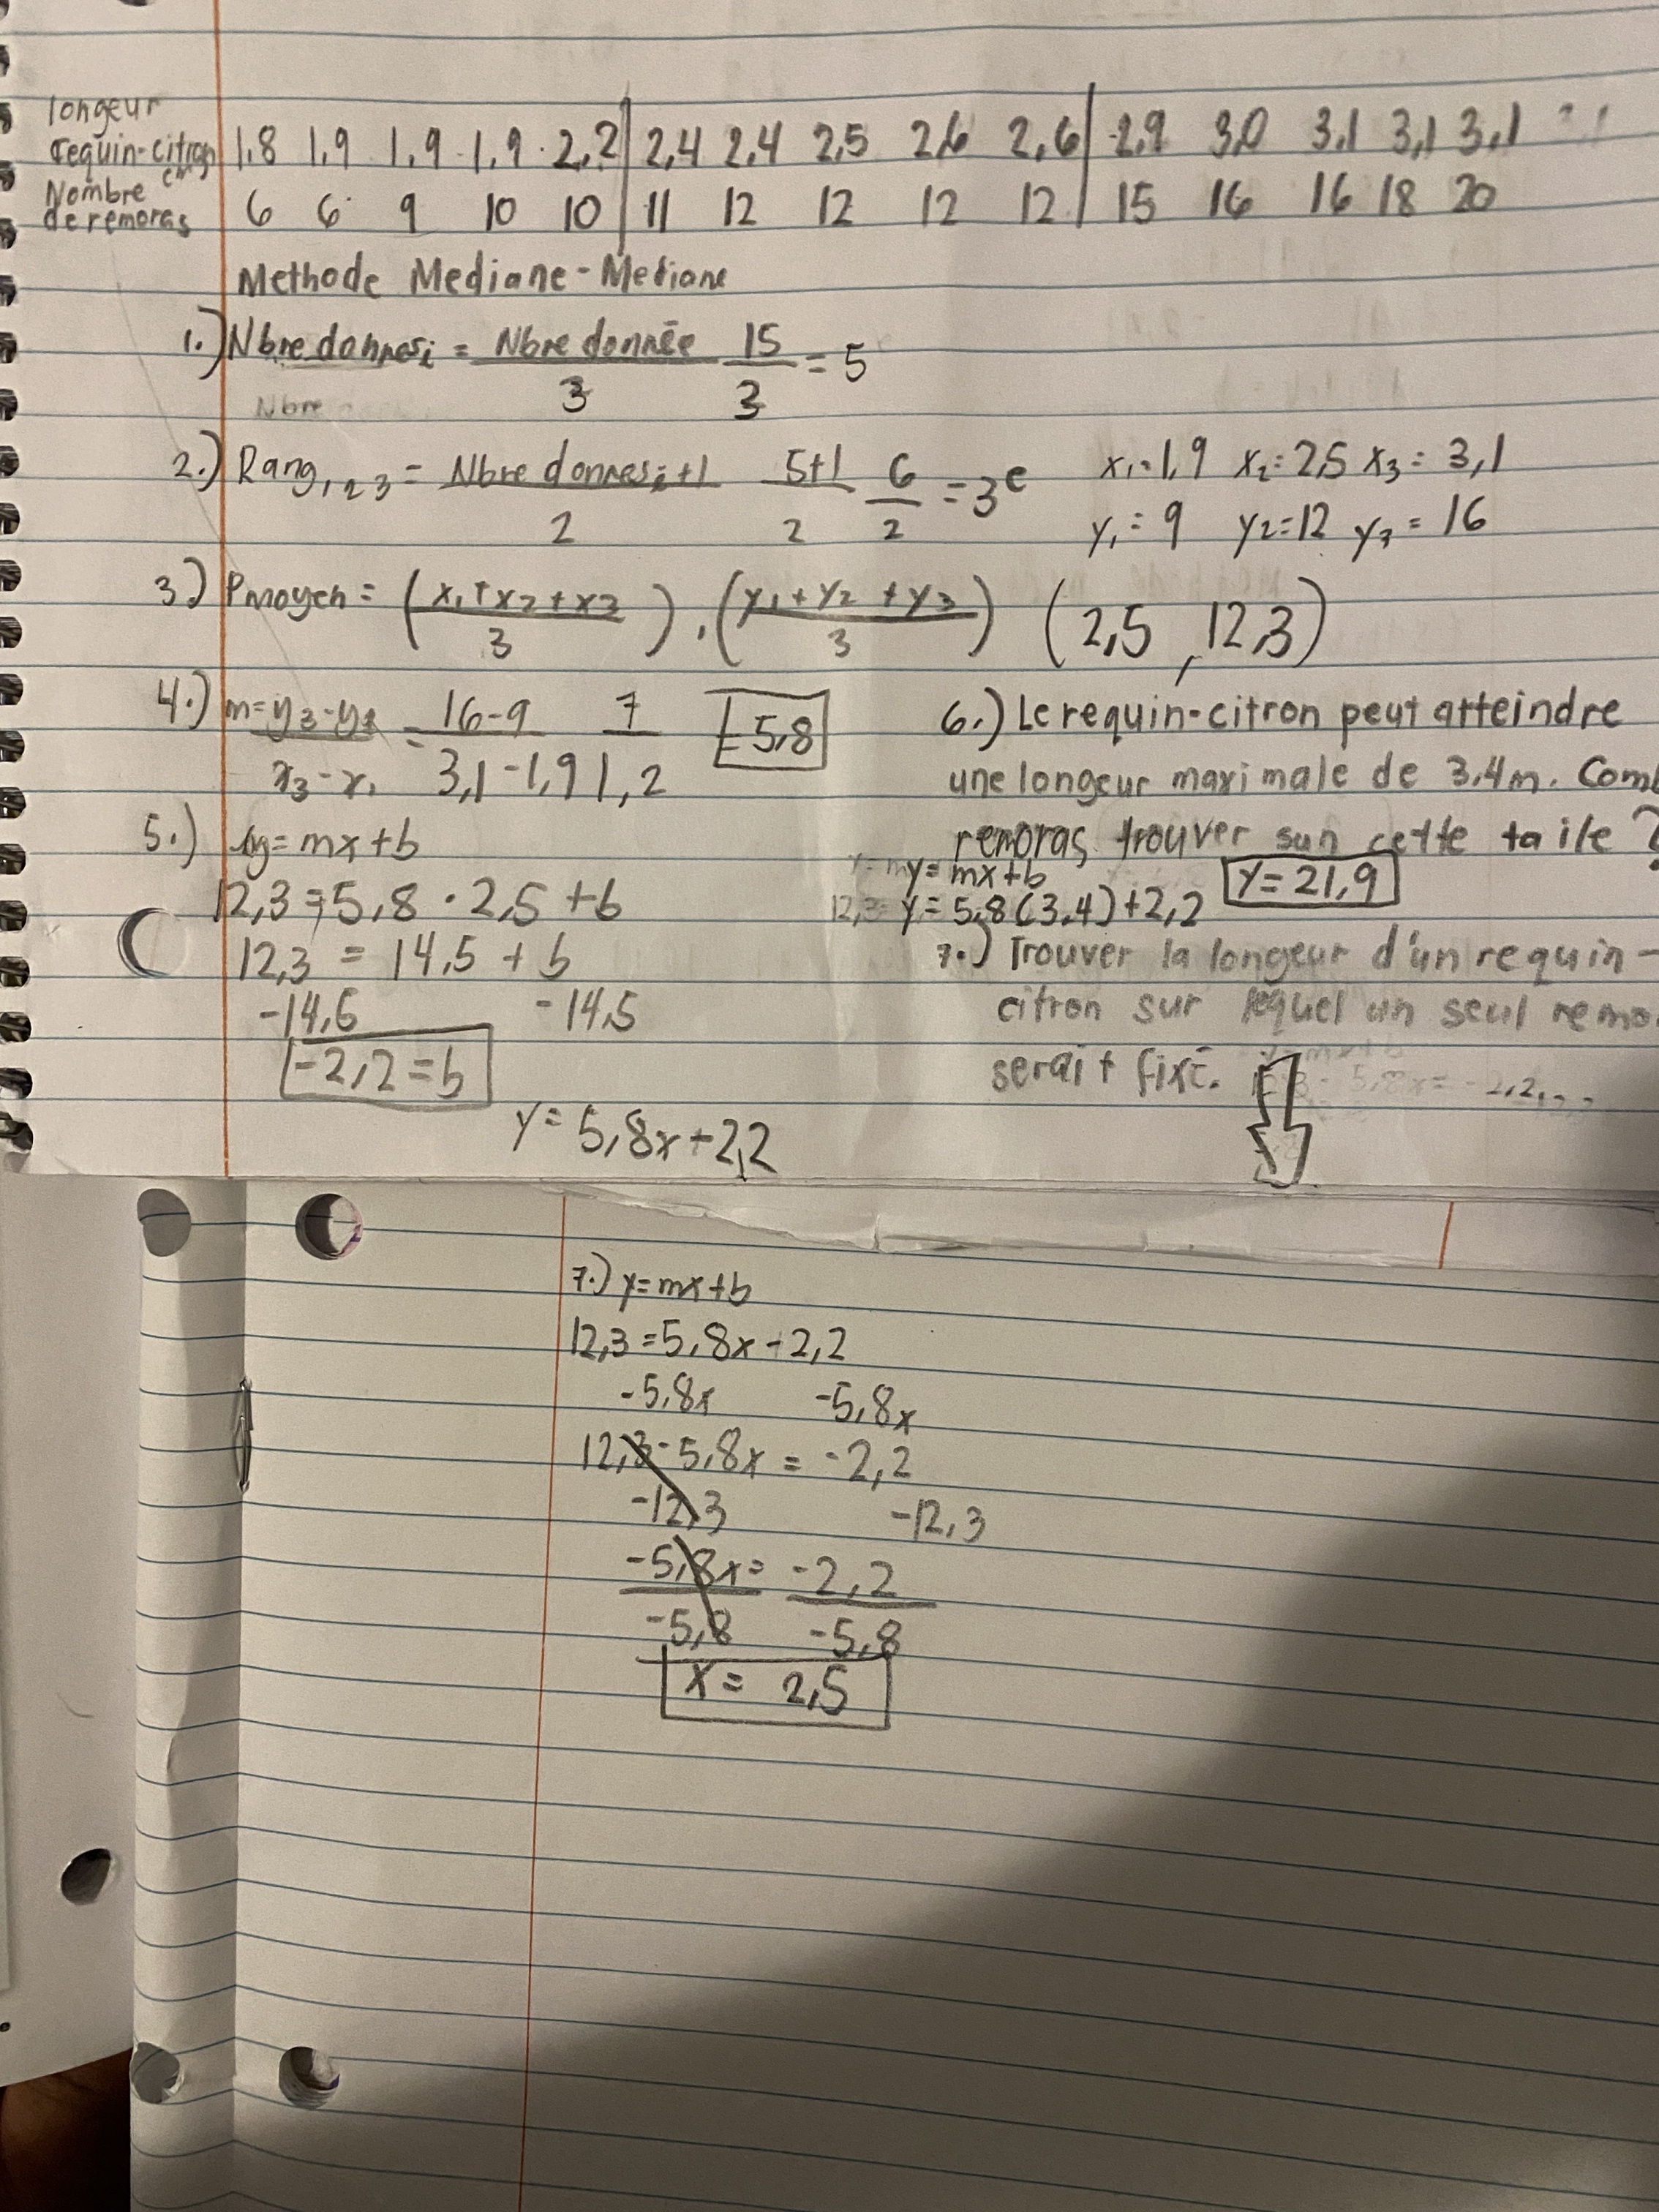 longeur
requin-citron 1,8 1,9 1,9 1,9 2,2 2,4 2,4 2,5 2,6 2,6 2,9 3,0 3,1 3,1 3,1
Nombre
de remoras 6 6 9 10 10 11 12 12 12 12 15 16 16 18 20
Methode Mediane - Mediane
1.) Nbre donnesi = Nbre donnée / 3 15 / 3 = 5
Nbre
2.) Rang1 2 3 = Nbre donnesi + 1 / 2 5+1 / 2 6 / 2 = 3e x1=1,9 x2=2,5 x3=3,1
y1=9 y2=12 y3=16
3) Pmoyen = (x1+x2+x3 / 3), (y1+y2+y3 / 3) (2,5 , 12,3)
4.) m=y3-y1 / x3-x1 = 16-9 / 3,1-1,9 7 / 1,2 =5,8
5.) y=mx+b
12,3=5,8 · 2,5+b
12,3 = 14,5 + b
-14,5 -14,5
-2,2=b
y=5,8x-2,2
6.) Le requin-citron peut atteindre
une longeur maximale de 3.4m. Com
remoras trouver sur cette taile ?
y=mx+b y=21,9
y=5,8(3,4)+2,2
7.) Trouver la longeur d'un requin-
citron sur lequel un seul remo
serait fixé.
7.) y=mx+b
12,3=5,8x-2,2
-5,8x -5,8x
12,3-5,8x = -2,2
-12,3 -12,3
-5,8x= -2,2
-5,8 -5,8
x= 2,5